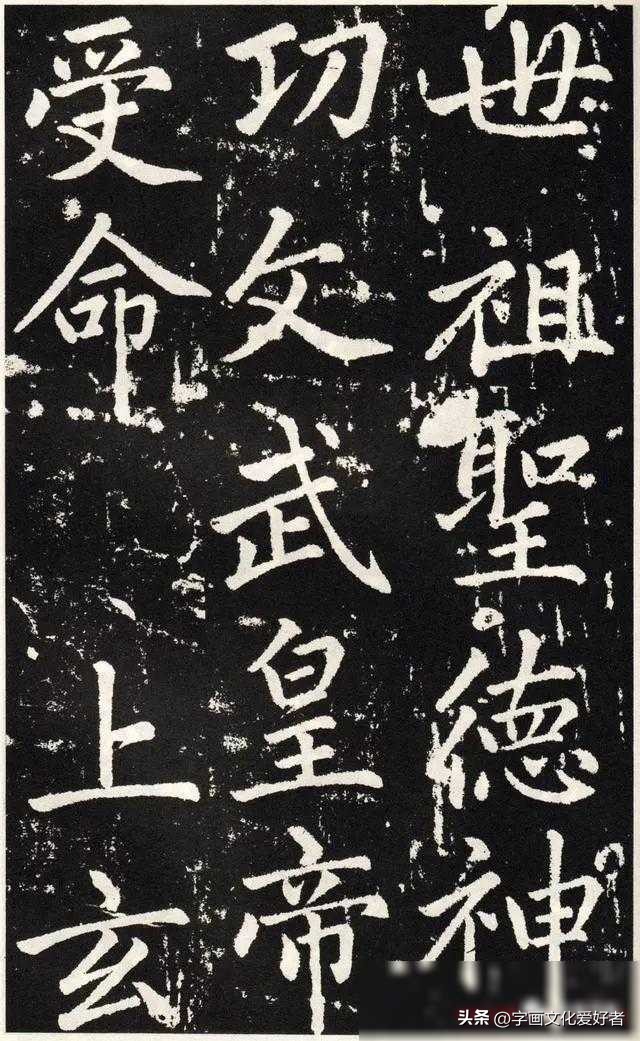 世祖聖德神
功文武皇帝
受命上玄
头条 @字画文化爱好者